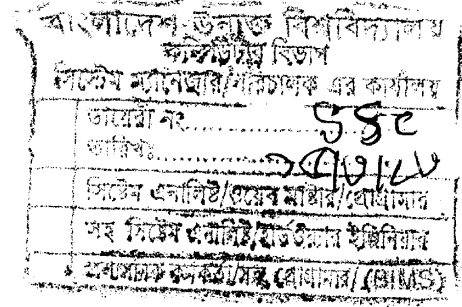 বাংলাদেশ উন্মুক্ত বিশ্ববিদ্যালয়
কম্পিউটার বিভাগ
সিস্টেম ম্যানেজার/পরিচালক এর কার্যালয়
ডায়েরী নং..........
তারিখঃ..........
সিস্টেম এনালিষ্ট/ওয়েব মাষ্টার/প্রোগ্রামার
সহ সিস্টেম এনালিষ্ট/হার্ডওয়্যার ইঞ্জিনিয়ার
প্রশাসনিক কর্মকর্তা/সহ প্রোগ্রামার/